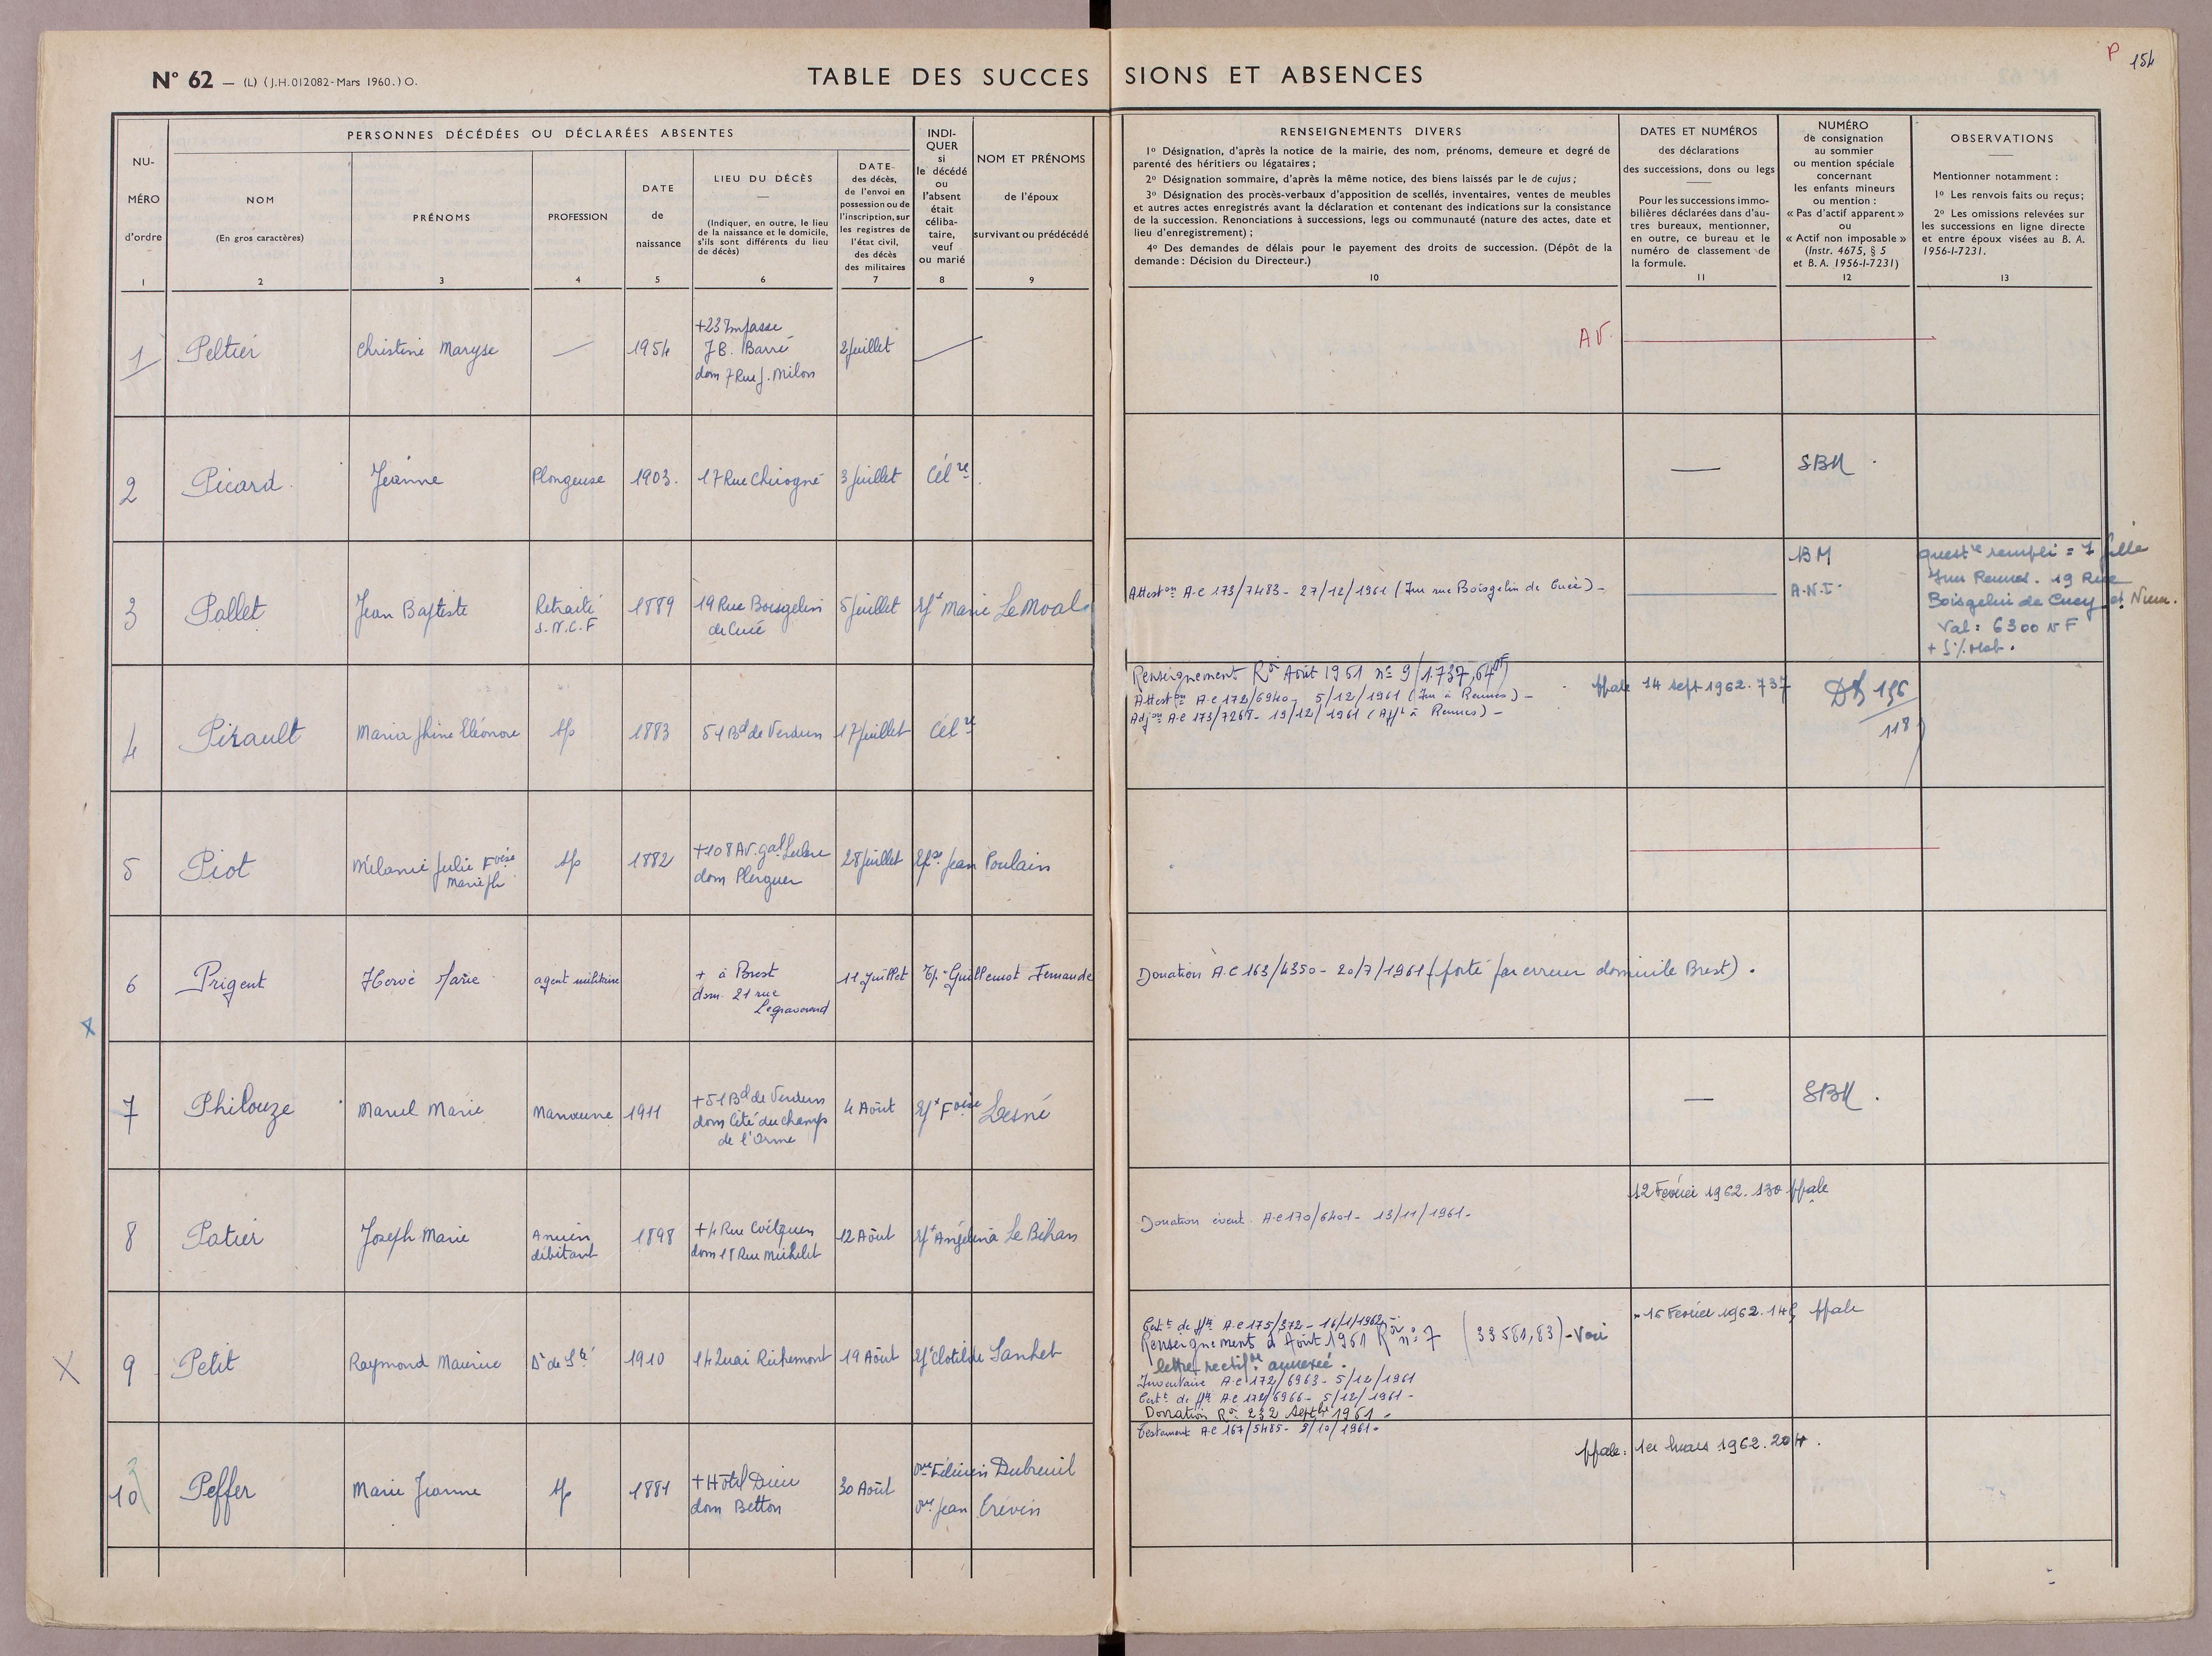 N° 62 — (L) (J.H. 012082 - Mars 1960.) O.
TABLE DES SUCCESSIONS ET ABSENCES
P 154
NU-
MÉRO
d'ordre
1
PERSONNES DÉCÉDÉES OU DÉCLARÉES ABSENTES
NOM
(En gros caractères)
2
PRÉNOMS
3
PROFESSION
4
DATE
de
naissance
5
LIEU DU DÉCÈS
(Indiquer, en outre, le lieu
de la naissance et le domicile,
s'ils sont différents du lieu
de décès)
6
DATE
des décès,
de l'envoi en
possession ou de
l'inscription, sur
les registres de
l'état civil,
des décès
des militaires
7
INDI-
QUER
si
le décédé
ou
l'absent
était
céliba-
taire,
veuf
ou marié
8
NOM ET PRÉNOMS
de l'époux
survivant ou prédécédé
9
RENSEIGNEMENTS DIVERS
1° Désignation, d'après la notice de la mairie, des nom, prénoms, demeure et degré de
parenté des héritiers ou légataires ;
2° Désignation sommaire, d'après la même notice, des biens laissés par le de cujus ;
3° Désignation des procès-verbaux d'apposition de scellés, inventaires, ventes de meubles
et autres actes enregistrés avant la déclaration et contenant des indications sur la consistance
de la succession. Renonciations à successions, legs ou communauté (nature des actes, date et
lieu d'enregistrement) ;
4° Des demandes de délais pour le payement des droits de succession. (Dépôt de la
demande : Décision du Directeur.)
10
DATES ET NUMÉROS
des déclarations
des successions, dons ou legs
Pour les successions immo-
bilières déclarées dans d'au-
tres bureaux, mentionner,
en outre, ce bureau et le
numéro de classement de
la formule.
11
NUMÉRO
de consignation
au sommier
ou mention spéciale
concernant
les enfants mineurs
ou mention :
« Pas d'actif apparent »
ou
« Actif non imposable »
(Instr. 4675, § 5
et B. A. 1956-I-7231)
12
OBSERVATIONS
Mentionner notamment :
1° Les renvois faits ou reçus ;
2° Les omissions relevées sur
les successions en ligne directe
et entre époux visées au B. A.
1956-I-7231.
13
1 Peltier Christine Maryse — 1954
+ 23 Impasse
J B. Barré
dom 7 Rue J. Milon
2 Juillet
AV.
2 Picard Jeanne Plongeuse 1903. 17 Rue Chicogné 3 Juillet Cél re. — SBM
3 Pallet Jean Baptiste
Retraité
S.N.C.F
1889
19 Rue Boisgelin
de Cucé
5 Juillet Marie Le Moal
Attest on A.C 173/7483 - 27/12/1961 (Im rue Boisgelin de Cucé) -
BM
A.N.I.
quest re rempli = 1 fille
Im Rennes. 19 Rue
Boisgelin de Cucey et Num.
Val = 6300 NF
+ 5% Mob.
4 Pirault Maria Phine Eléonore sp 1883 51 Bd de Verdun 17 Juillet Cél re
Renseignement Août 1961 n° 9/1.737,64
Attest on A.C 172/6940 - 5/12/1961 (Im à Rennes) -
Adj on A.C 173/7268 - 19/12/1961 (à Rennes) -
ppale 14 sept 1962. 737
118
5 Piot
Mélanie Julie Foise
Marie Ph
sp 1882
+ 108 Av. Gal Leclerc
dom Plerguer
28 Juillet Jean Poulain
6 Prigent Hervé Marie agent militaire
+ à Brest
dom. 21 rue
Legraverend
11 Juillet Guillemot Fernande
Donation A.C 163/4350 - 20/7/1961 (porté par erreur domicile Brest).
7 Philouze Marcel Marie Manœuvre 1911
+ 51 Bd de Verdun
dom Cité du champs
de l'Orme
4 Août Foise Lesné — SBM.
8 Patier Joseph Marie
Ancien
débitant
1898
+ 4 Rue Coëtquen
dom 18 Rue Michelet
12 Août Angélina Le Bihan
Donation évent. A.C 170/6401 - 13/11/1961 -
12 Février 1962. 130 ppale
9 Petit Raymond Maurice 1910 14 Quai Richemont 19 Août Clotilde
Cert. de A.C 175/372 - 16/1/1962
Renseignements d Août 1961 n° 7 (33581,83) - Voir
lettre rectif annexée.
Inventaire A.C 172/6963 - 5/12/1961
Cert. de A.C 172/6966 - 5/12/1961 -
Donation 232 1961 -
15 Février 1962. ppale
10 Peffer Marie Jeanne sp 1881
+ Hôtel Dieu
dom Betton
30 Août
Vve Félicien Dubreuil
Vve Jean Crévin
Testament A.C 167/5485 - 9/10/1961 -
ppale : 1er Mars 1962. 204.